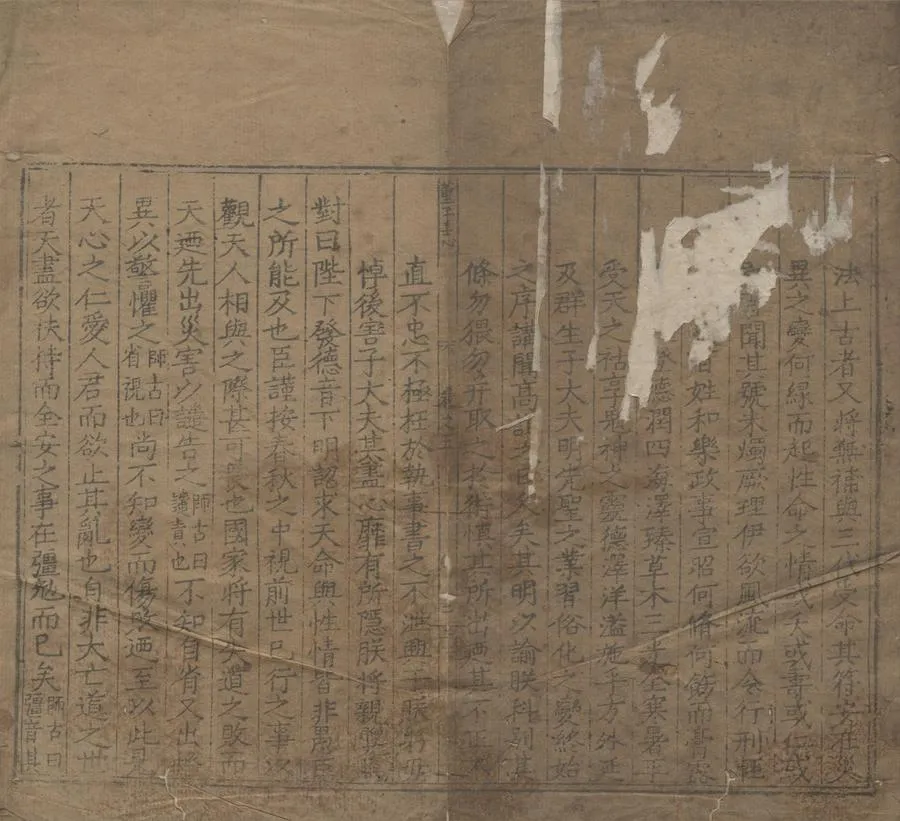 法上古者又將無補與三代受命其符安在災
異之變何緣而起性命之情或夭或壽或仁或
聞其號未燭厥理伊欲風流而令行刑輕
姓和樂政事宣昭何脩何飭而膏露
登德潤四海澤臻草木三光全寒暑平
受天之祜享鬼神之靈德澤洋溢施乎方外延
及群生子大夫明先聖之業習俗化之變終始
之序講聞高誼之日久矣其明以諭朕科別其
條勿猥勿并取之於術慎其所出廼其不正不
董子
直不忠不極枉於執事書之不泄興于朕躬毋
悼後害子大夫其盡心靡有所隱朕將親覽焉
對曰陛下發德音下明詔求天命與性情皆非愚臣
之所能及也臣謹按春秋之中視前世已行之事以
觀天人相與之際甚可畏也國家將有失道之敗而
天廼先出災害以譴告之師古曰譴責也不知自省又出怪
異以警懼之師古曰省視也尚不知變而傷敗廼至以此見
天心之仁愛人君而欲止其亂也自非大亡道之世
者天盡欲扶持而全安之事在彊勉而已矣師古曰彊音其